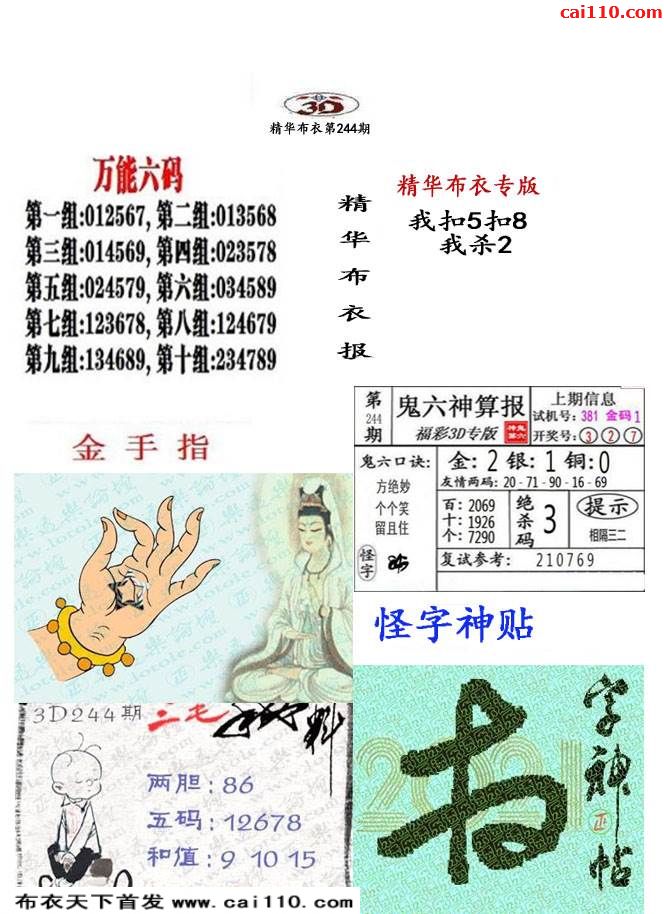 cai110.com
3D
精华布衣第244期
万能六码
第一组:012567, 第二组:013568
第三组:014569, 第四组:023578
第五组:024579, 第六组:034589
第七组:123678, 第八组:124679
第九组:134689, 第十组:234789
精华布衣报
精华布衣专版
我扣5扣8
我杀2
金手指
第244期
鬼六神算报
福彩3D专版
上期信息
试机号: 381 金码 1
开奖号: 3 2 7
鬼六口诀:
方绝妙
个个笑
留且住
怪字
金: 2 银: 1 铜: 0
友情两码: 20-71-90-16-69
百: 2069
十: 1926
个: 7290
绝杀码
3
提示
相隔三二
复试参考: 210769
怪字神贴
3D244期
三毛
两胆: 86
五码: 12678
和值: 9 10 15
2021
字神帖
正
布衣天下首发 www.cai110.com